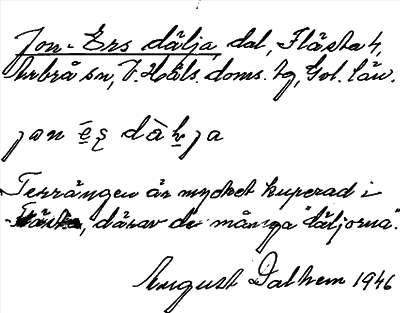 Jon-Ers dälja, dal, Flästa 4,
Arbrå sn, V. Häls. doms. tg, Gvl. län.
jon ēs̨ dàḻja
Terrängen är mycket kuperad i
Flästa, därav de många "däljorna".
August Dalhem 1946